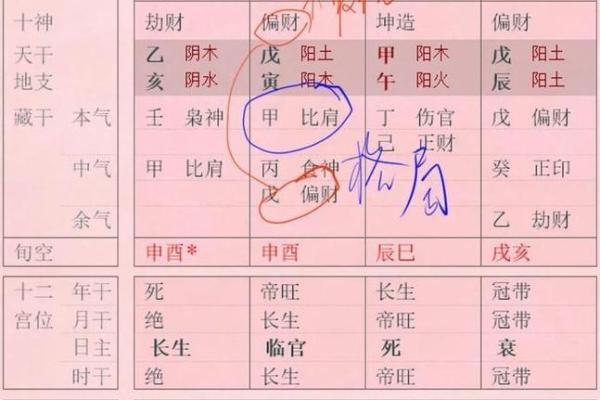 十神 劫财 偏财 坤造 偏财
天干 乙 阴木 戊 阳土 甲 阳木 戊 阳土
地支 亥 阴水 寅 阳木 午 阳火 辰 阳土
藏干 本气 壬 枭神 甲 比肩 丁 伤官 戊 偏财
己 正财
中气 甲 比肩 丙 食神 癸 正印
戊 偏财
格局
余气 乙 劫财
旬空 申酉* 申酉 辰巳 戌亥
十二 年干 死 帝旺 长生 冠带
宫位 月干 绝 长生 帝旺 冠带
日主 长生 临官 死 衰
时干 绝 长生 帝旺 冠带